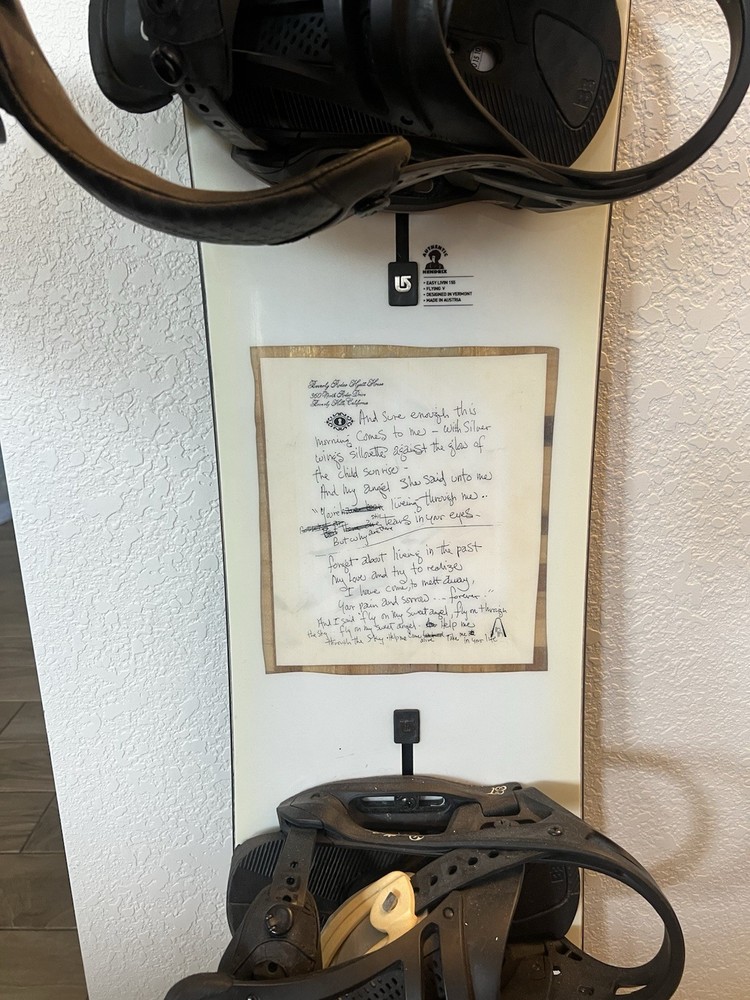 AUTHENTIC
HENDRIX
• EASY LIVIN 155
• FLYING V
• DESIGNED IN VERMONT
• MADE IN AUSTRIA
Beverly Rodeo Hyatt House
360 North Rodeo Drive
Beverly Hills, California
1 And Sure enough this
morning comes to me – with Silver
wings sillouetted against the glow of
the child sunrise –
And my angel she said unto me
"You're living through me..
tears in your eyes –
But why
forget about living in the past
My Love and try to realize
I have come to melt away,
Your pain and sorrow ... forever.."
And I said "fly on my sweet angel, fly on through
the sky, fly on my sweet angel help me
through the sky